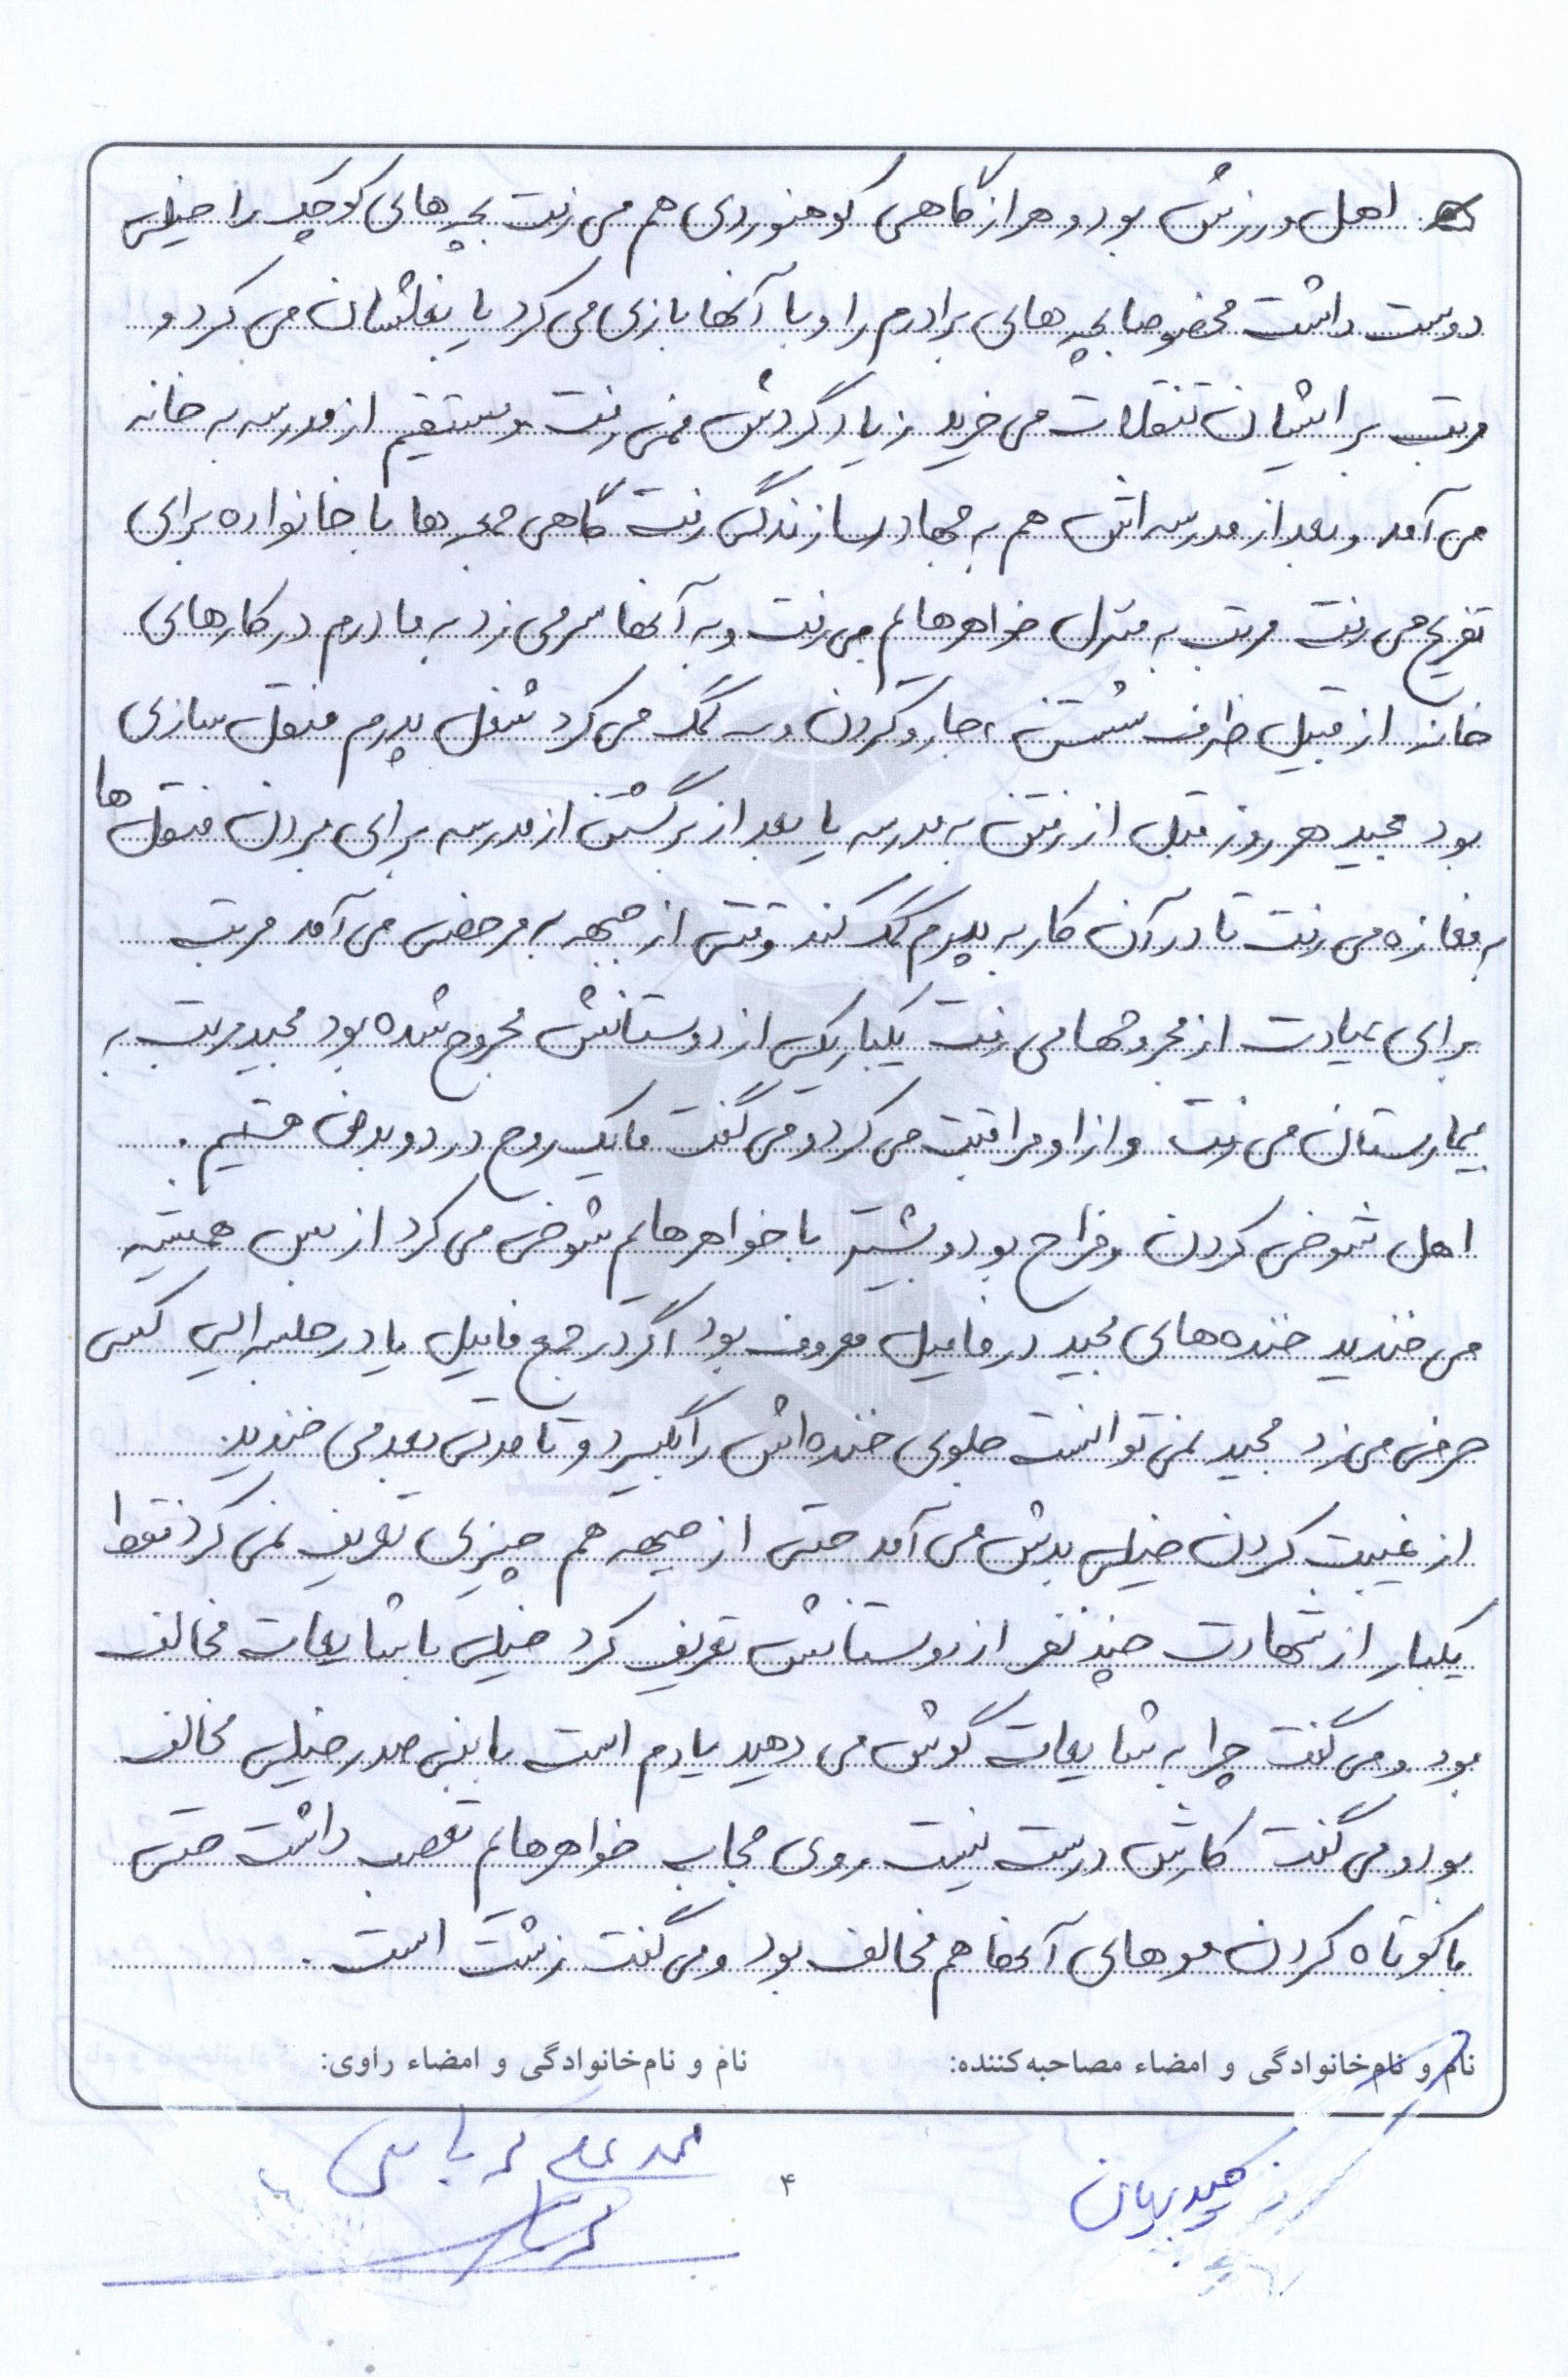 اهل ورزش بود و هر از گاهی کوهنوردی هم می رفت بچه های کوچک را خیلی
دوست داشت مخصوصا بچه های برادرم را و با آنها بازی می کرد یا بغلشان می کرد و
مرتب برایشان تنقلات می خرید زیاد گردش نمی رفت و مستقیم از مدرسه به خانه
می آمد و بعد از مدرسه اش هم به جهاد سازندگی رفت گاهی جمعه ها با خانواده برای
تفریح می رفت مرتب به منزل خواهرهایم می رفت و به آنها سر می زد به مادرم در کارهای
خانه از قبیل ظرف شستن، جارو کردن و... کمک می کرد شغل پدرم منقل سازی
بود مجید هر روز قبل از رفتن به مدرسه یا بعد از برگشتن از مدرسه برای بردن منقل ها
به مغازه می رفت تا در آن کار به پدرم کمک کند وقتی از جبهه به مرخصی می آمد مرتب
برای عیادت از مجروحها می رفت یکبار یکی از دوستانش مجروح شده بود مجید مرتب به
بیمارستان می رفت و از او مراقبت می کرد و می گفت ما یک روح در دو بدن هستیم.
اهل شوخی کردن و مزاح بود و بیشتر با خواهرهایم شوخی می کرد از بس همیشه
می خندید خنده های مجید در فامیل معروف بود اگر در جمع فامیل یا در جلسه ایی کسی
حرفی می زد مجید نمی توانست جلوی خنده اش را بگیرد و تا مدتی بعد می خندید.
از غیبت کردن خیلی بدش می آمد حتی از جبهه هم چیزی تعریف نمی کرد فقط
یکبار از شهادت چند نفر از دوستانش تعریف کرد خیلی با شایعات مخالف
بود و می گفت چرا به شایعات گوش می دهید یادم است با بنی صدر خیلی مخالف
بود و می گفت کارش درست نیست روی حجاب خواهرهایم تعصب داشت حتی
با کوتاه کردن موهای آنها هم مخالف بود و می گفت زشت است.
نام و نام‌خانوادگی و امضاء مصاحبه‌کننده: نام و نام‌خانوادگی و امضاء راوی:
محمد علی
۴